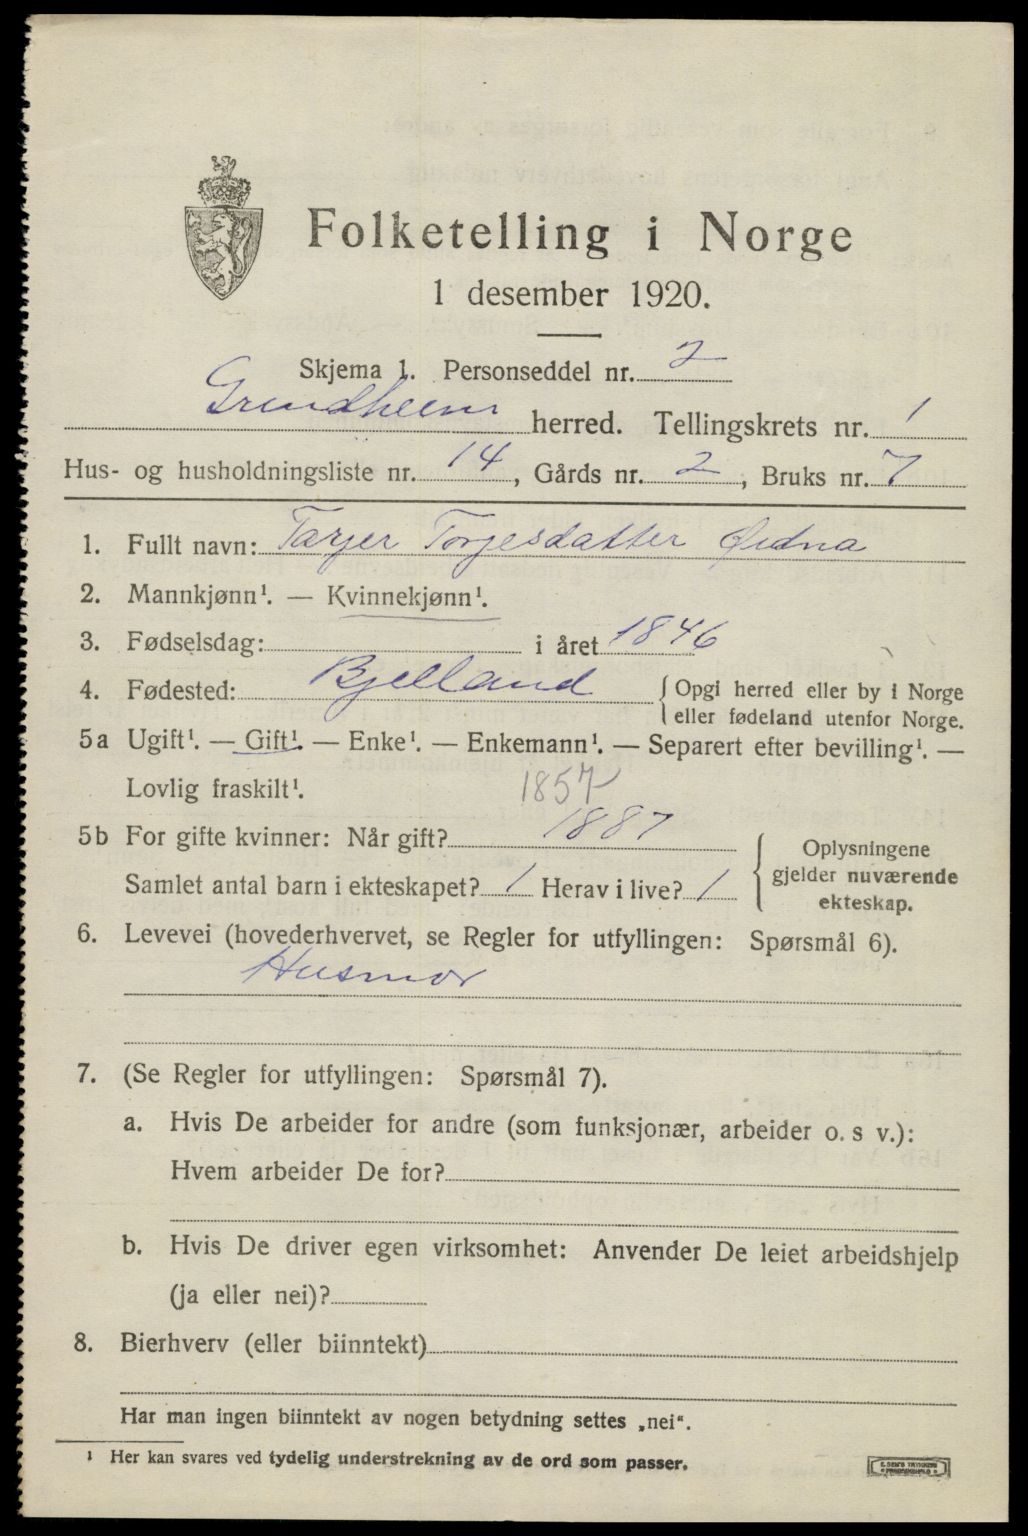 Folketelling i Norge
1 desember 1920.
Skjema 1. Personseddel nr. 2
Grindheim herred. Tellingskrets nr. 1
Hus- og husholdningsliste nr. 14, Gårds nr. 2, Bruks nr. 7
1. Fullt navn: Tarjer Torjesdatter Øidna
2. Mannkjønn¹. — Kvinnekjønn¹.
3. Fødselsdag: i året 1846
4. Fødested: Bjelland { Opgi herred eller by i Norge
eller fødeland utenfor Norge.
5a Ugift¹. — Gift¹. — Enke¹. — Enkemann¹. — Separert efter bevilling¹. —
Lovlig fraskilt¹. 1857
5b For gifte kvinner: Når gift? 1887
Samlet antal barn i ekteskapet? 1 Herav i live? 1
{ Oplysningene
gjelder nuværende
ekteskap.
6. Levevei (hovederhvervet, se Regler for utfyllingen: Spørsmål 6).
Husmor
7. (Se Regler for utfyllingen: Spørsmål 7).
a. Hvis De arbeider for andre (som funksjonær, arbeider o. s v.):
Hvem arbeider De for?
b. Hvis De driver egen virksomhet: Anvender De leiet arbeidshjelp
(ja eller nei)?
8. Bierhverv (eller biinntekt)
Har man ingen biinntekt av nogen betydning settes „nei“.
¹ Her kan svares ved tydelig understrekning av de ord som passer.